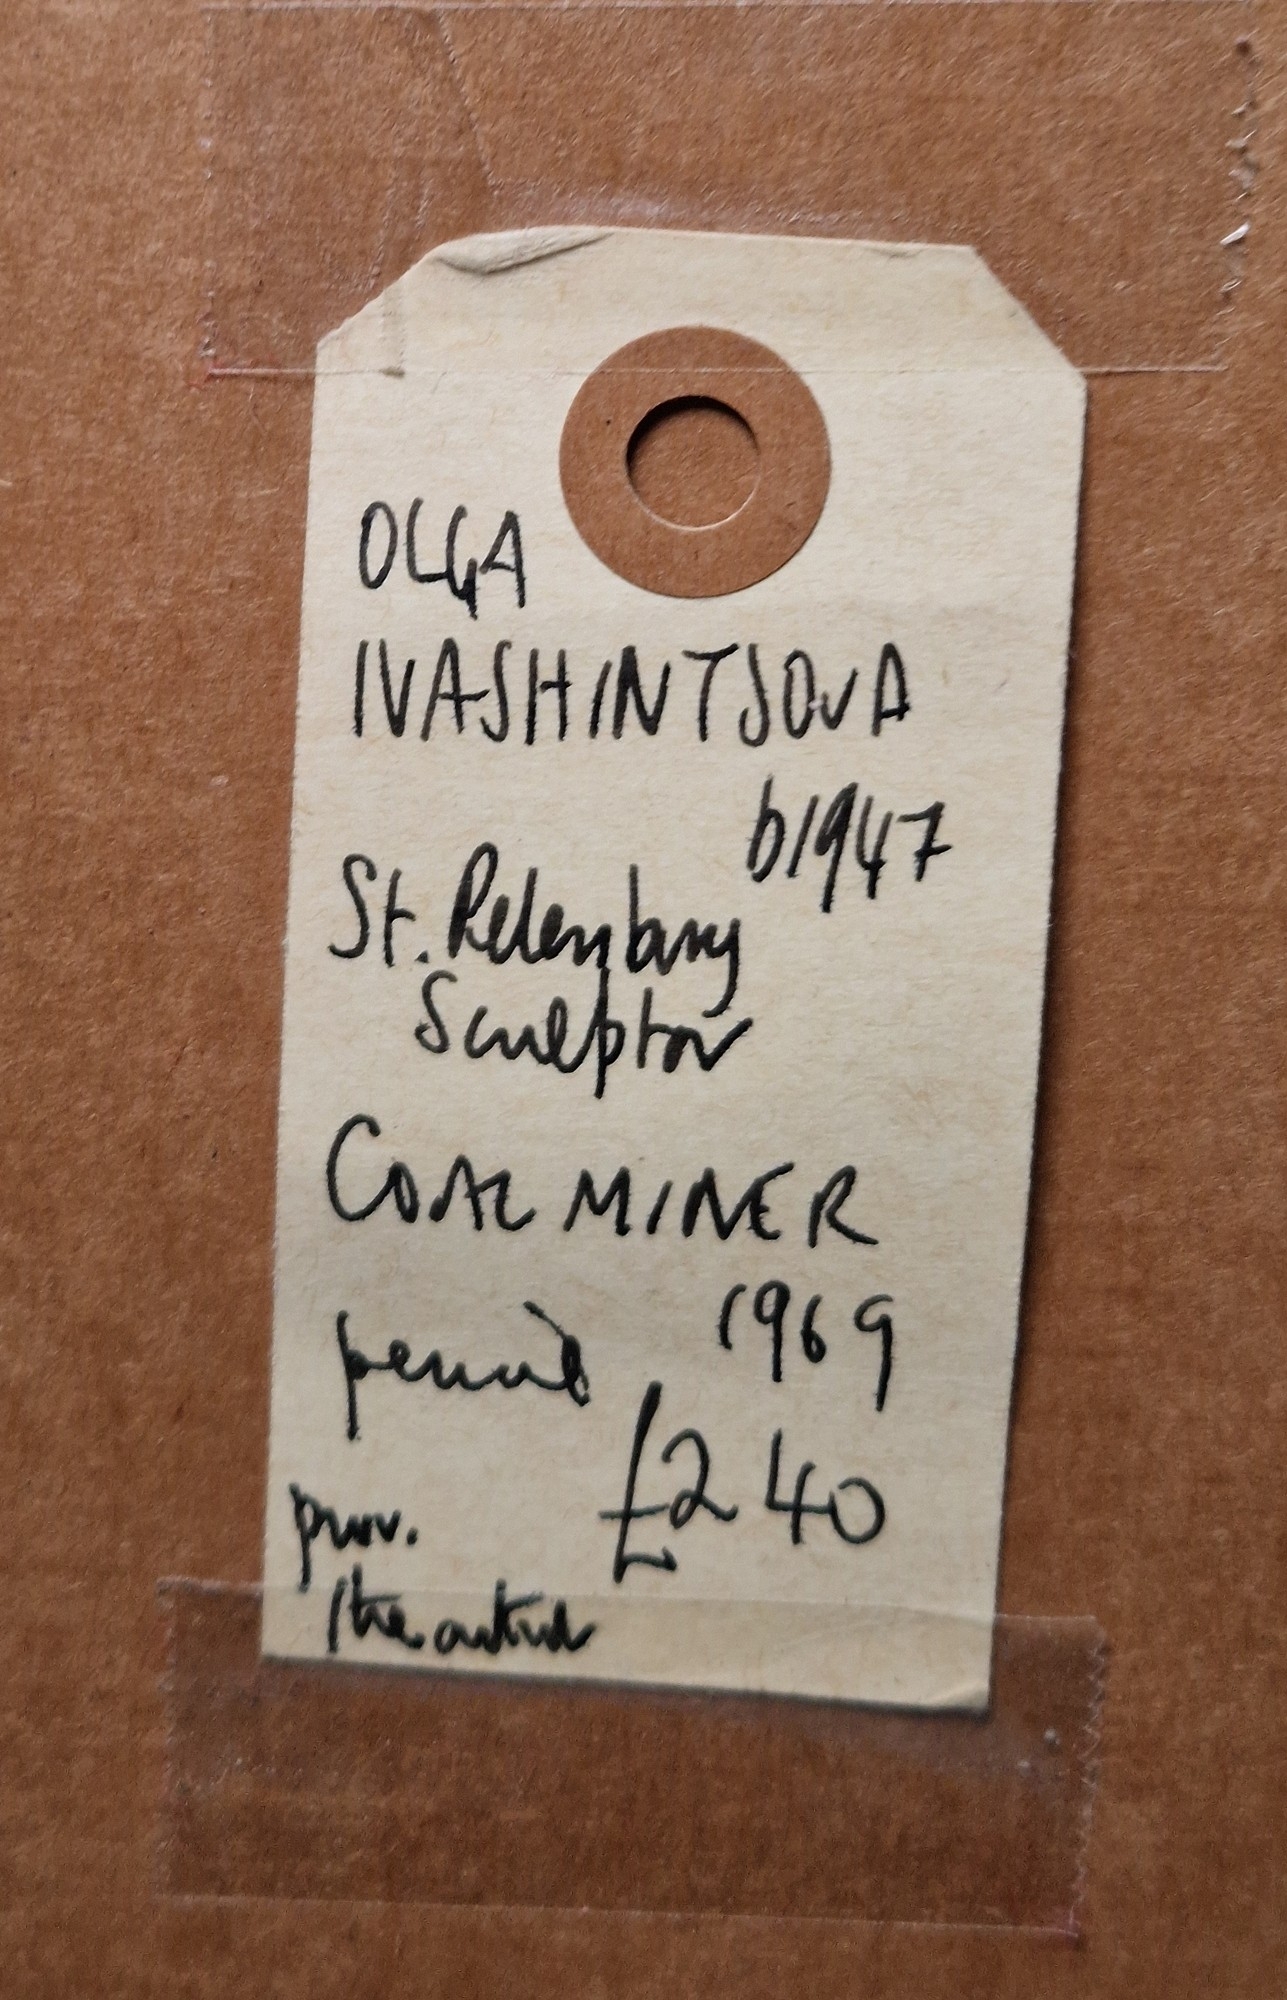 OLGA
IVASHINTSOVA
b1947
St. Petersburg
Sculptor
COAL MINER
1969
pencil
£240
prov.
the artist